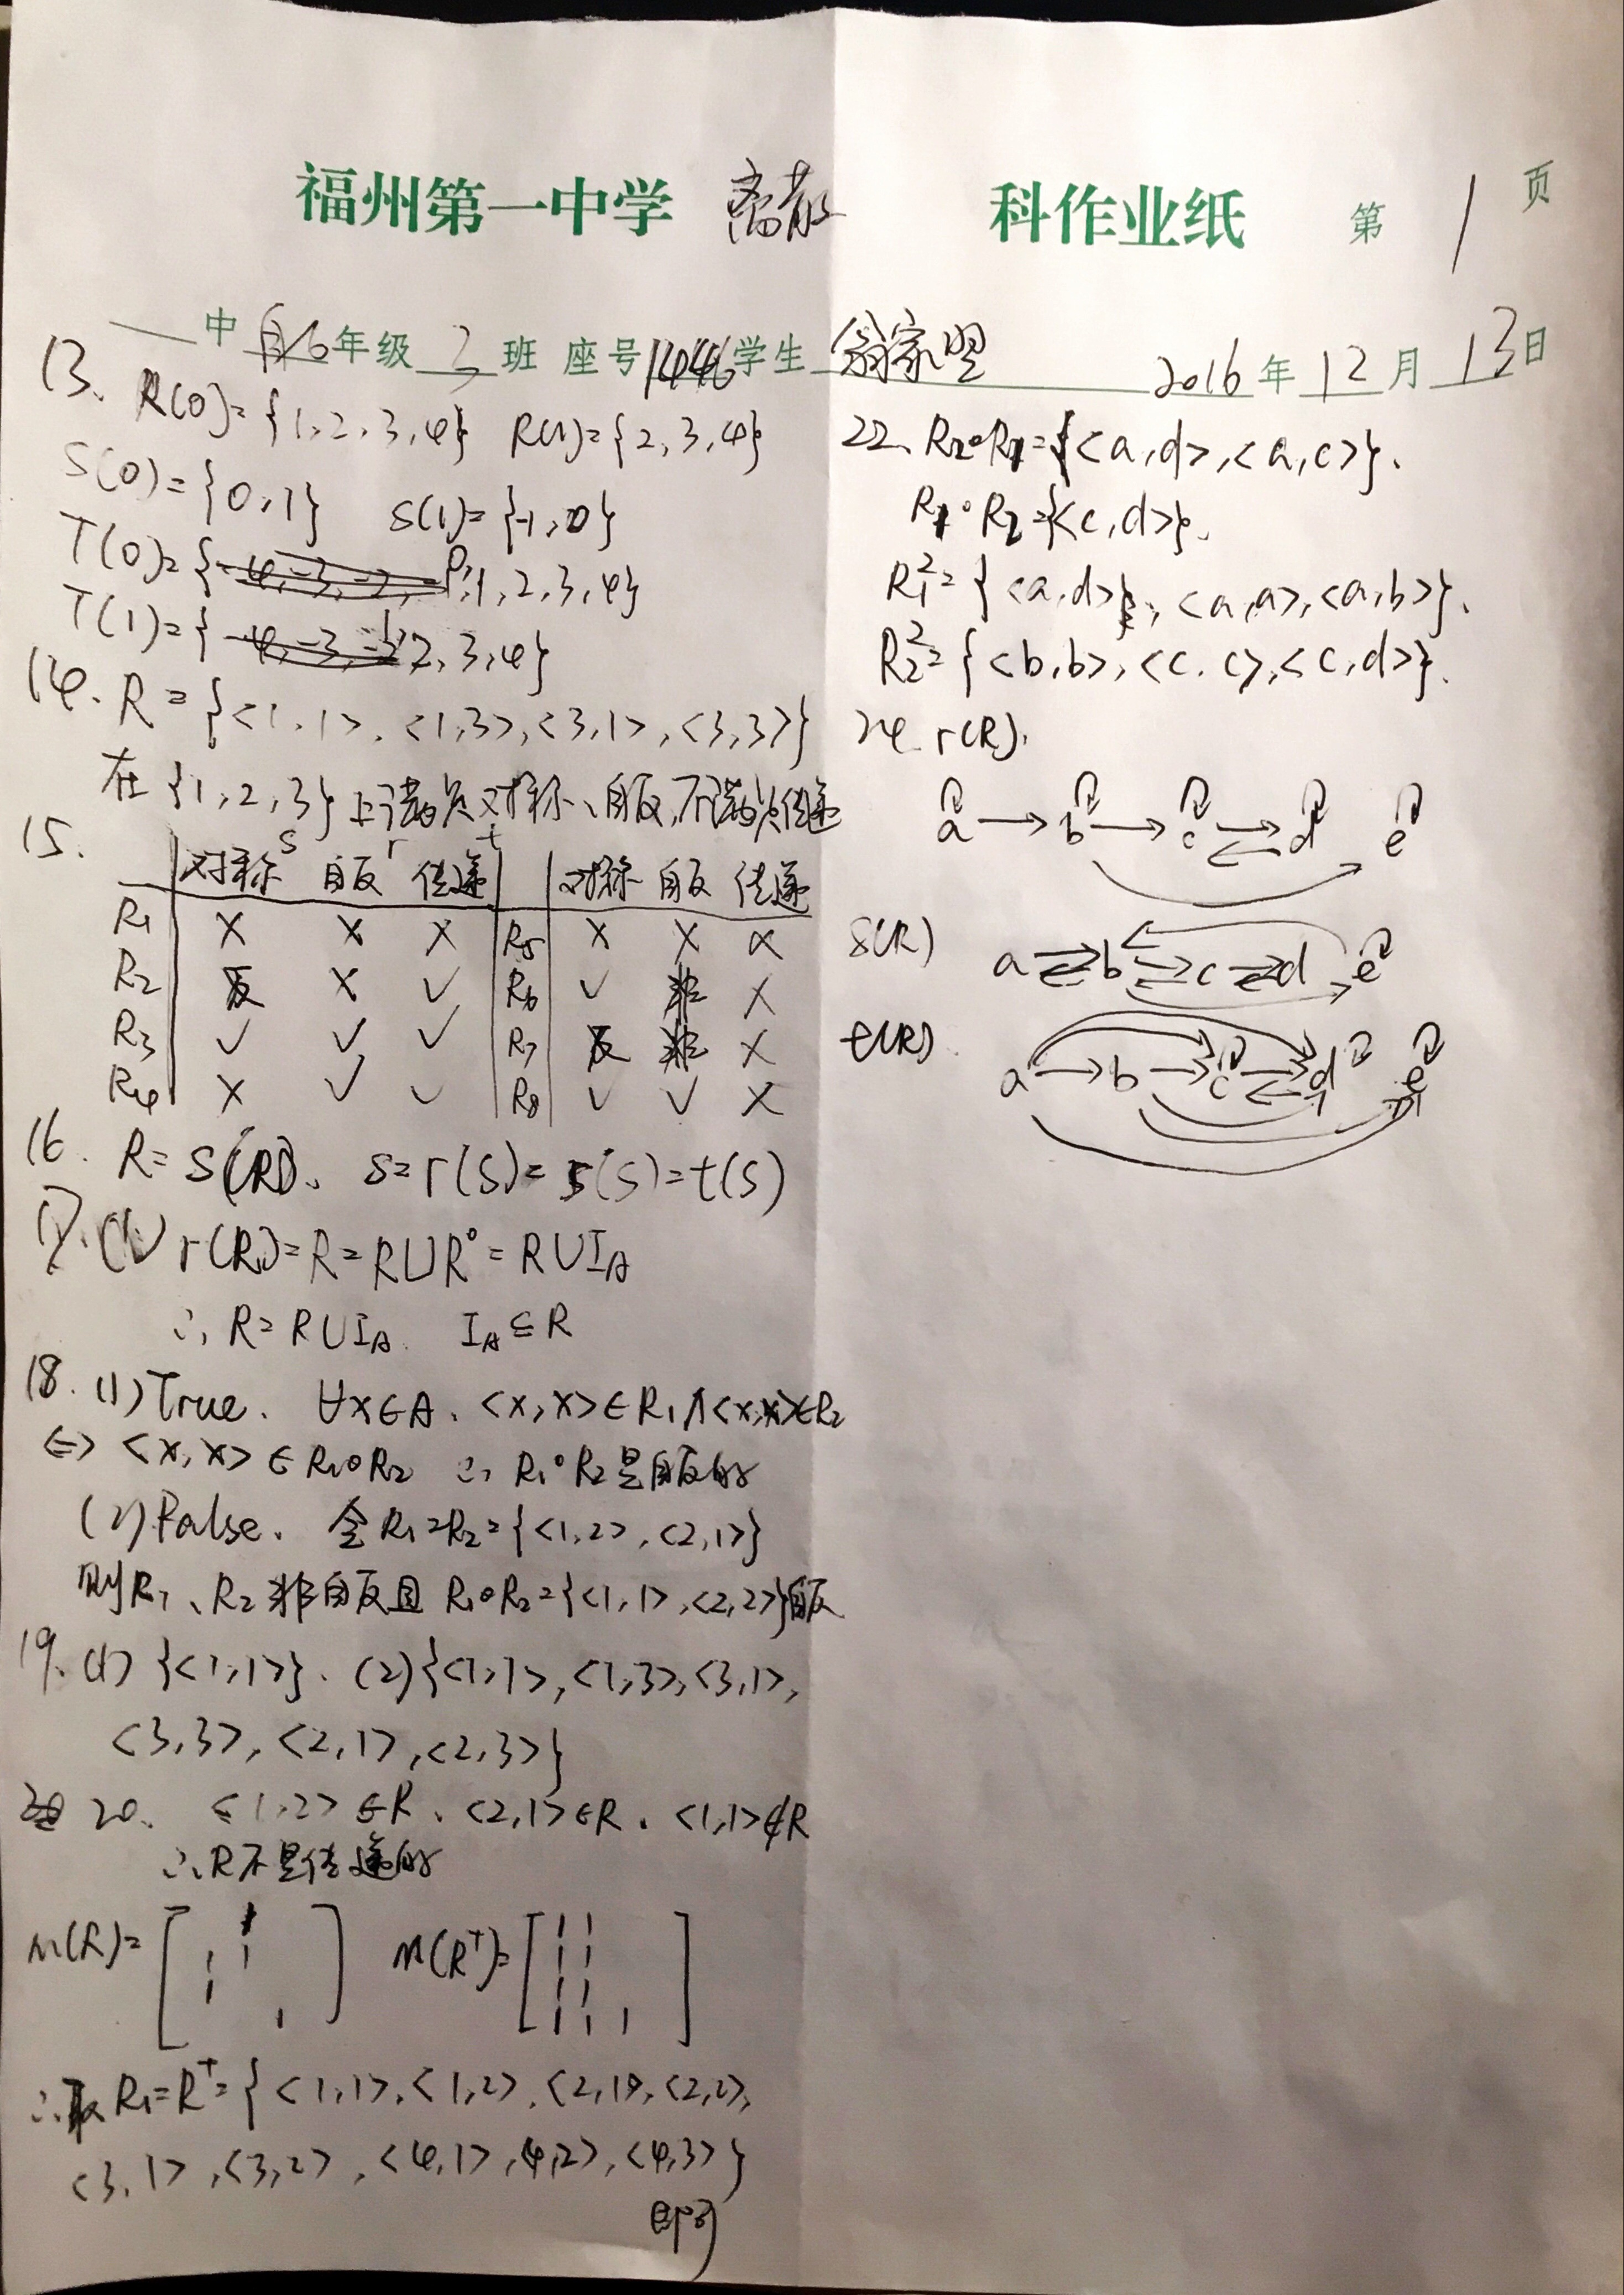 福州第一中学 离散 科作业纸 第 1 页
中 年级 3 班 座号 1446 学生 翁家明 2016 年 12 月 13 日
13. R(0)={1,2,3,4} R(1)={2,3,4}
S(0)={0,1} S(1)={-1,0}
T(0)={0,1,2,3,4}
T(1)={1,2,3,4}
14. R={<1,1>,<1,3>,<3,1>,<3,3>}
在{1,2,3}上满足对称、自反,不满足传递
15. 对称 s 自反 r 传递 t 对称 自反 传递
R1 × × × R5 × × ×
R2 反 × ✓ R6 ✓ 非 ×
R3 ✓ ✓ ✓ R7 反 非 ×
R4 × ✓ ✓ R8 ✓ ✓ ×
16. R=S(R). S=r(S)=s(S)=t(S)
17. (1) r(R)=R=R∪R⁰=R∪I_A
∴ R=R∪I_A. I_A⊆R
18. (1) True. ∀x∈A. <x,x>∈R1∧<x,x>∈R2
⇔ <x,x>∈R1∘R2 ∴ R1∘R2是自反的
(2) False. 令R1=R2={<1,2>,<2,1>}
则R1、R2非自反且 R1∘R2={<1,1>,<2,2>}自反
19. (1) {<1,1>}. (2){<1,1>,<1,3>,<3,1>,
<3,3>,<2,1>,<2,3>}
20. <1,2>∈R. <2,1>∈R. <1,1>∉R
∴R不是传递的
M(R)=[ 1
1 1
1
1 ] M(R⁺)=[ 1 1
1 1
1 1
1 1 1 ]
∴取R1=R⁺={<1,1>,<1,2>,<2,1>,<2,2>,
<3,1>,<3,2>,<4,1>,4,2>,<4,3>}
即可
22. R2∘R1={<a,d>,<a,c>}.
R1∘R2={<c,d>}.
R1²={<a,d>,<a,a>,<a,b>}.
R2²={<b,b>,<c,c>,<c,d>}.
24. r(R).
a → b → c ⇄ d e
s(R)
a ⇄ b ⇄ c ⇄ d e
t(R).
a → b → c ⇄ d e